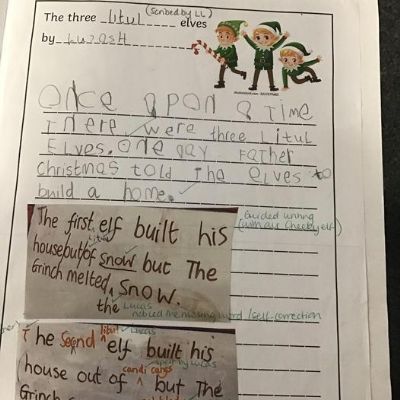 (scribed by LL)
The three litul elves
by Luca S H
Once upon a time
There were three Litul
Elves. One day Father
Christmas told The elves to
build a home.
The first elf built his
Litul
house out of snow but The
Grinch melted snow.
the
Guided writing
(with our cheeky elf)
Lucas
noticed the missing word / self-correction
The Second litul elf built his
Lucas
house out of candi cangs but The
Grinch